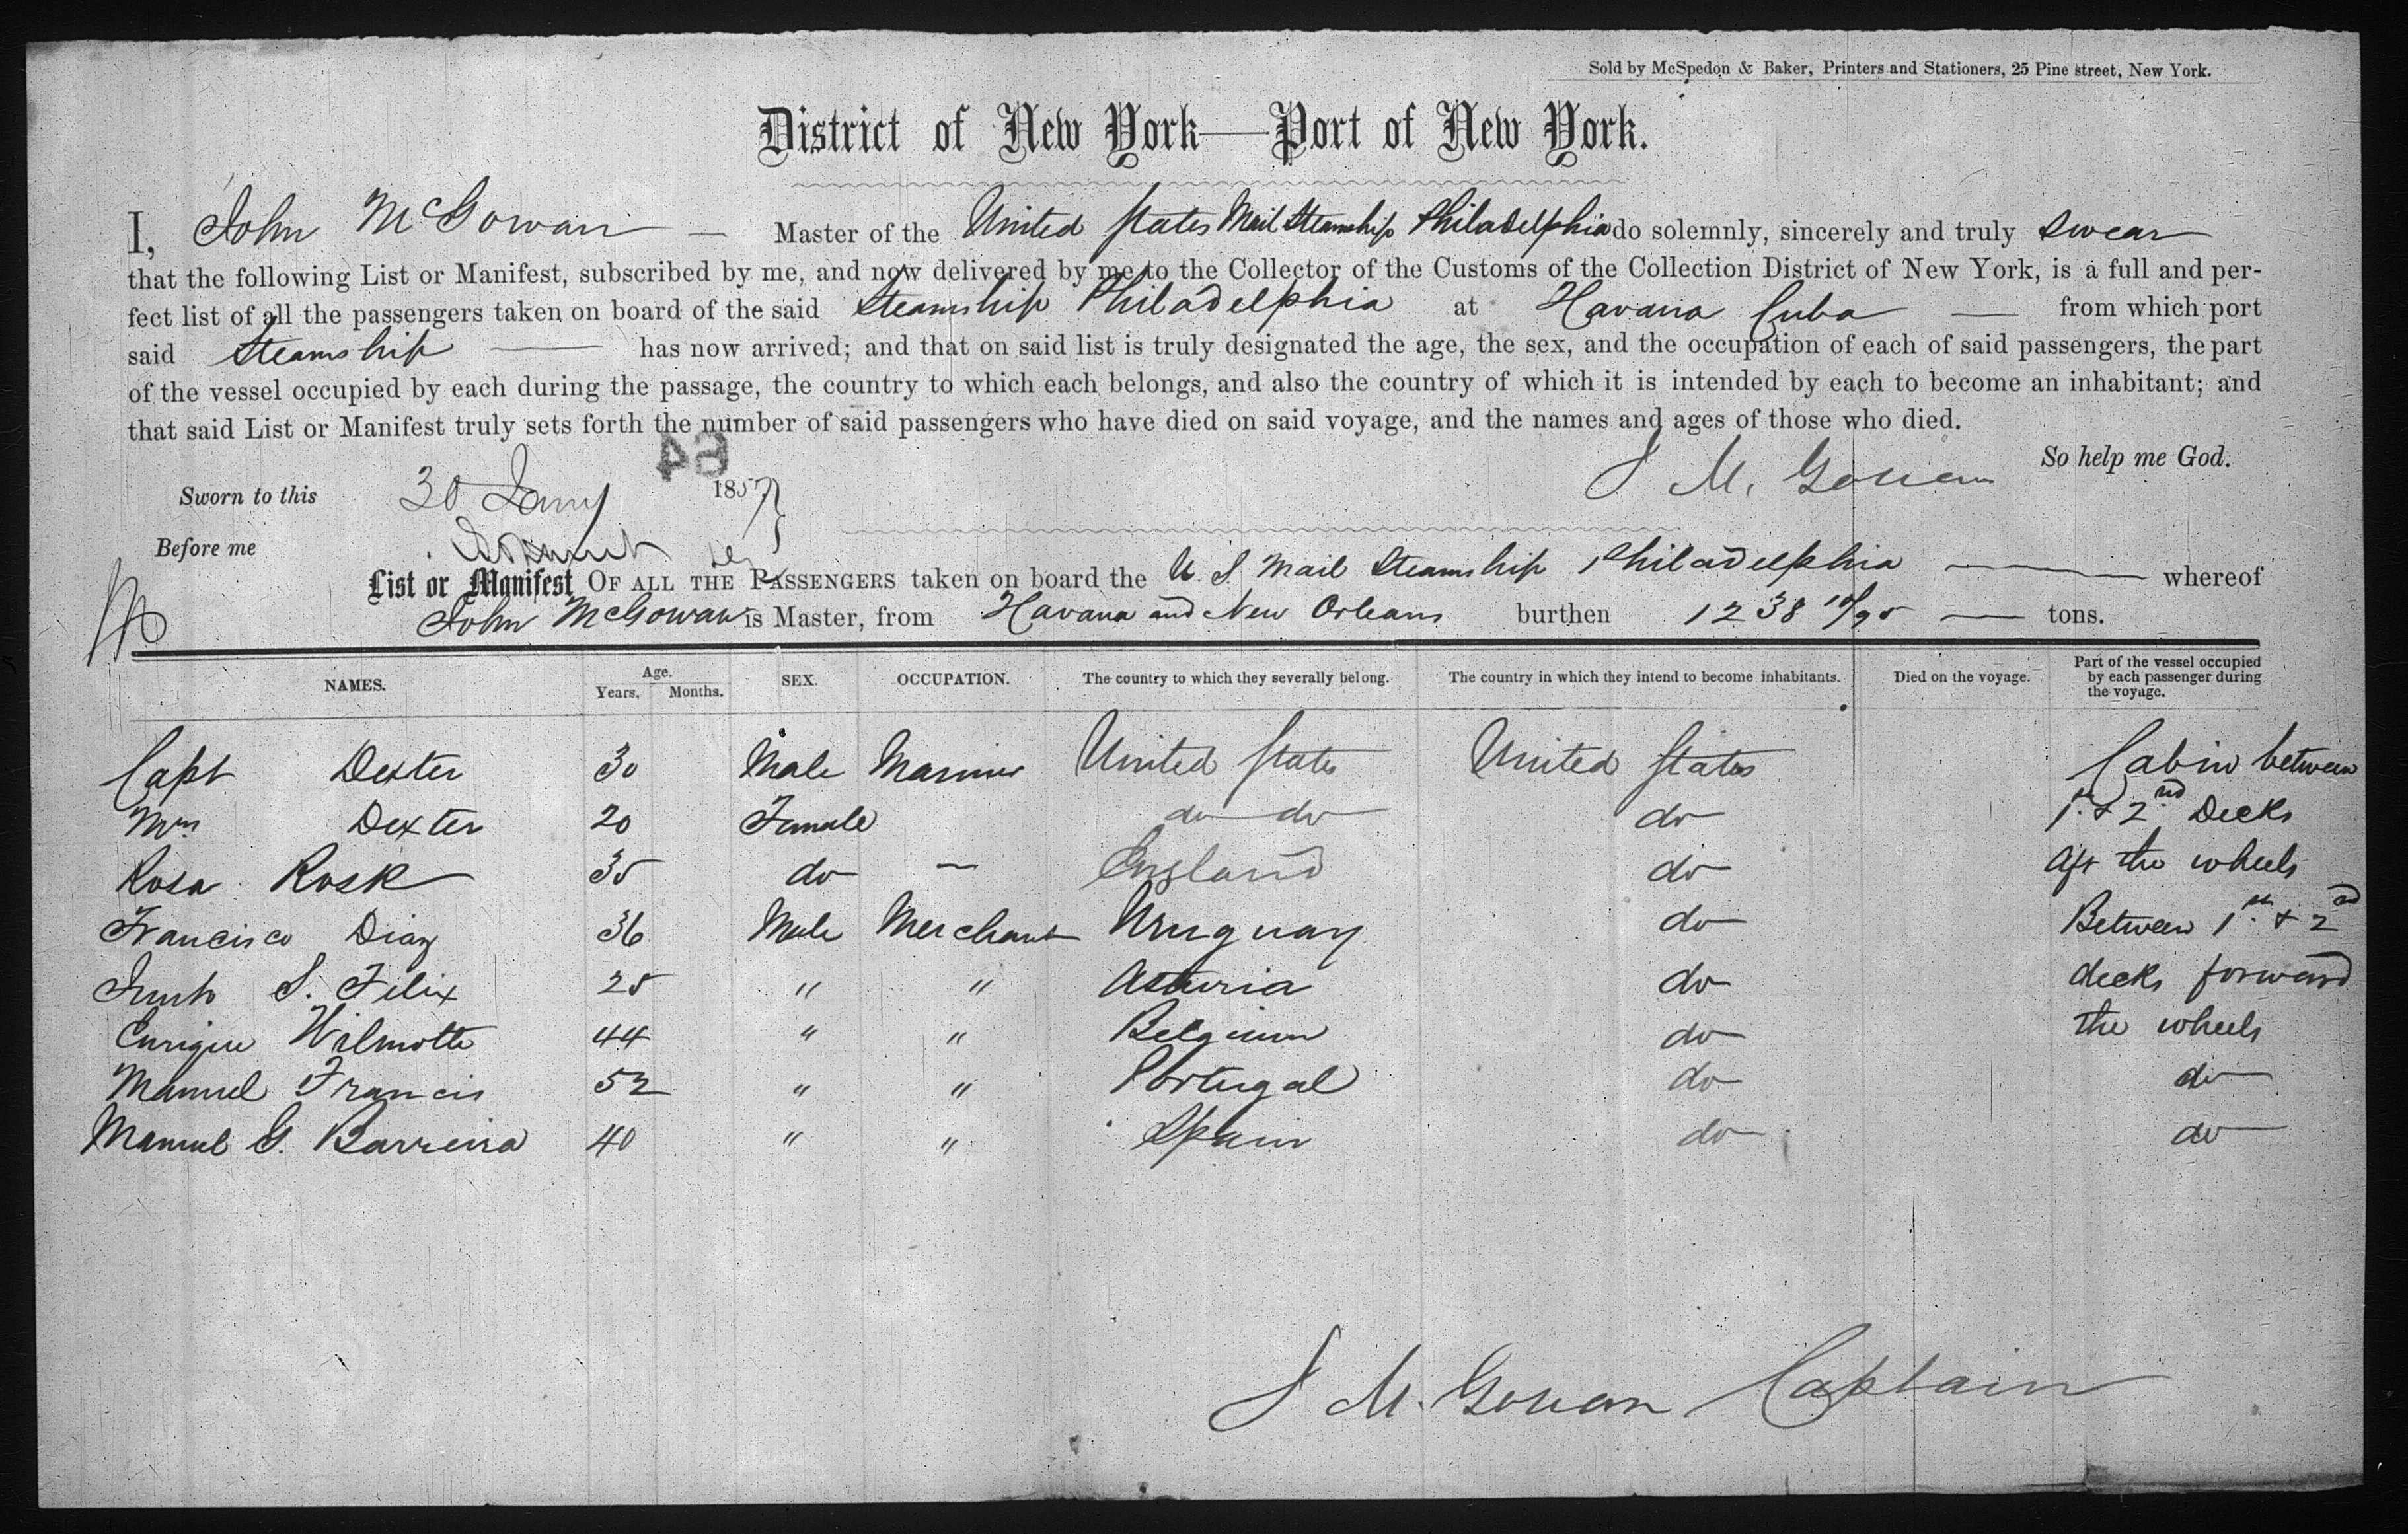 Sold by McSpedon & Baker, Printers and Stationers, 25 Pine street, New York.
District of New York—Port of New York.
I, John McGowan — Master of the United States Mail Steamship Philadelphia do solemnly, sincerely and truly swear
that the following List or Manifest, subscribed by me, and now delivered by me to the Collector of the Customs of the Collection District of New York, is a full and per-
fect list of all the passengers taken on board of the said Steamship Philadelphia at Havana Cuba — from which port
said Steamship — has now arrived; and that on said list is truly designated the age, the sex, and the occupation of each of said passengers, the part
of the vessel occupied by each during the passage, the country to which each belongs, and also the country of which it is intended by each to become an inhabitant; and
that said List or Manifest truly sets forth the number of said passengers who have died on said voyage, and the names and ages of those who died.
64
So help me God.
Sworn to this 30 Jany 1857 J M. Gowan
Before me
List or Manifest OF ALL THE PASSENGERS taken on board the U. S. Mail Steamship Philadelphia — whereof
John McGowan is Master, from Havana and New Orleans burthen 1238 10/95 — tons.
NAMES. Age. Years. Months. SEX. OCCUPATION. The country to which they severally belong. The country in which they intend to become inhabitants. Died on the voyage. Part of the vessel occupied by each passenger during the voyage.
Capt Dexter 30 Male Mariner United States United States Cabin between
Mrs Dexter 20 Female do do do 1st & 2nd Decks
Rosa Rosk 35 do — England do aft the wheels
Francisco Diaz 36 Male Merchant Uruguay do Between 1st & 2nd
S. Felix 25 " " Asturia do decks forward
Enrique Wilmotte 44 " " Belgium do the wheels
Manuel Francis 52 " " Portugal do do
Manuel G. Barreira 40 " " Spain do do
J M. Gowan Captain